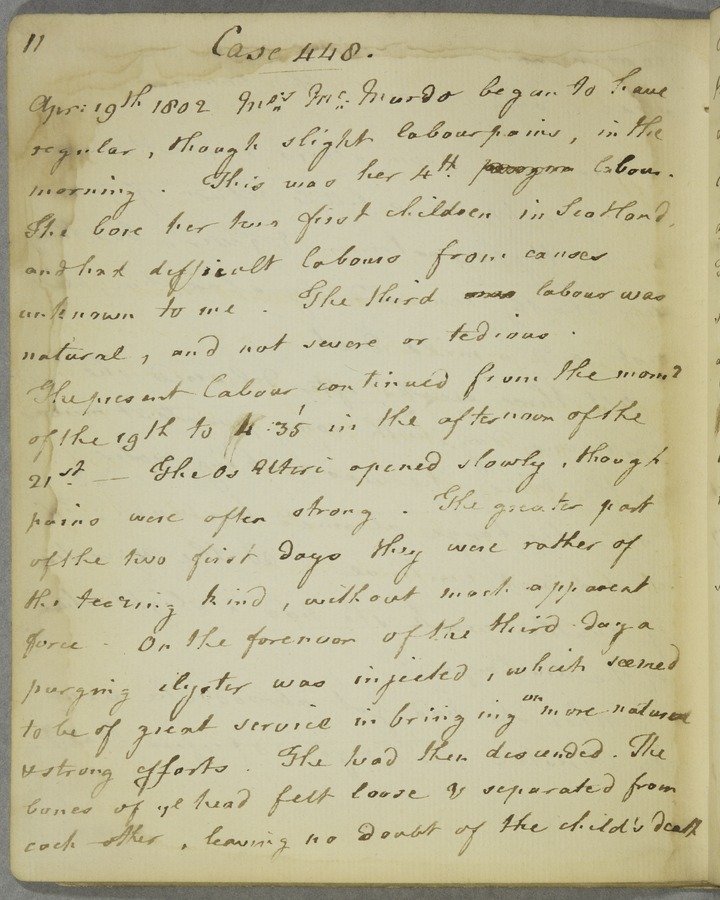 11
Case 448.
Apr: 19th 1802 Mrs Mc: Murdo began to have
regular, though slight labour pains, in the
morning. This was her 4th labour.
She bore her two first children in Scotland,
and had difficult labours from causes
unknown to me. The third labour was
natural, and not severe or tedious.
The present labour continued from the morng
of the 19th to 4.35' in the afternoon of the
21st — The Os Uteri opened slowly, though
pains were often strong. The greater part
of the two first days they were rather of
the teazing kind, without much apparent
force. On the forenoon of the third day a
purging clyster was injected, which seemed
to be of great service in bringing on more natural
& strong efforts. The head then descended. The
bones of ye head felt loose & separated from
each other, leaving no doubt of the child's death